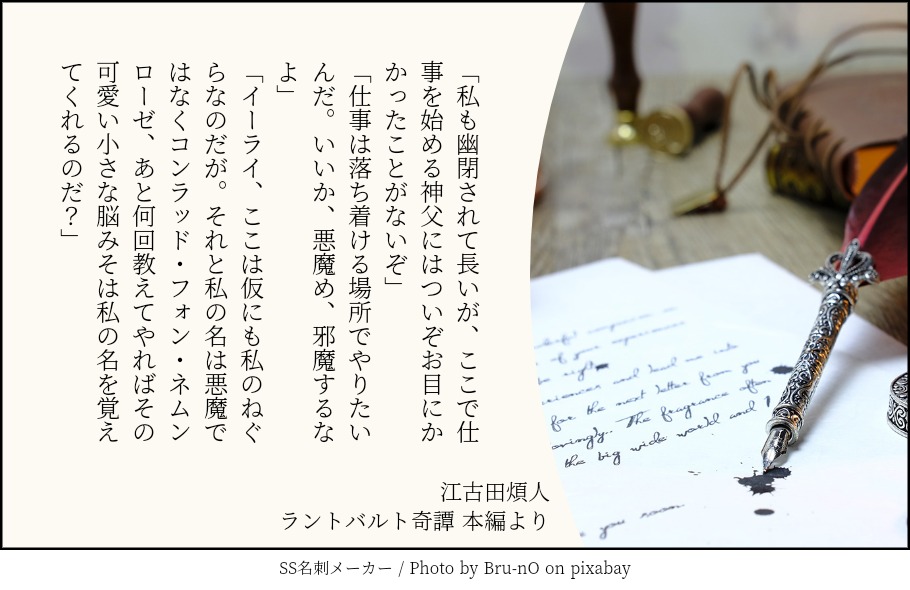 「私も幽閉されて長いが、ここで仕
事を始める神父にはついぞお目にか
かったことがないぞ」
「仕事は落ち着ける場所でやりたい
んだ。いいか、悪魔め、邪魔するな
よ」
「イーライ、ここは仮にも私のねぐ
らなのだが。それと私の名は悪魔で
はなくコンラッド・フォン・ネムン
ローゼ、あと何回教えてやればその
可愛い小さな脳みそは私の名を覚え
てくれるのだ？」
江古田煩人
ラントバルト奇譚 本編より
of your experiences
and lead me into
for the next letter from you
The fragrance often
the big wide world and I
you soon
SS名刺メーカー / Photo by Bru-nO on pixabay